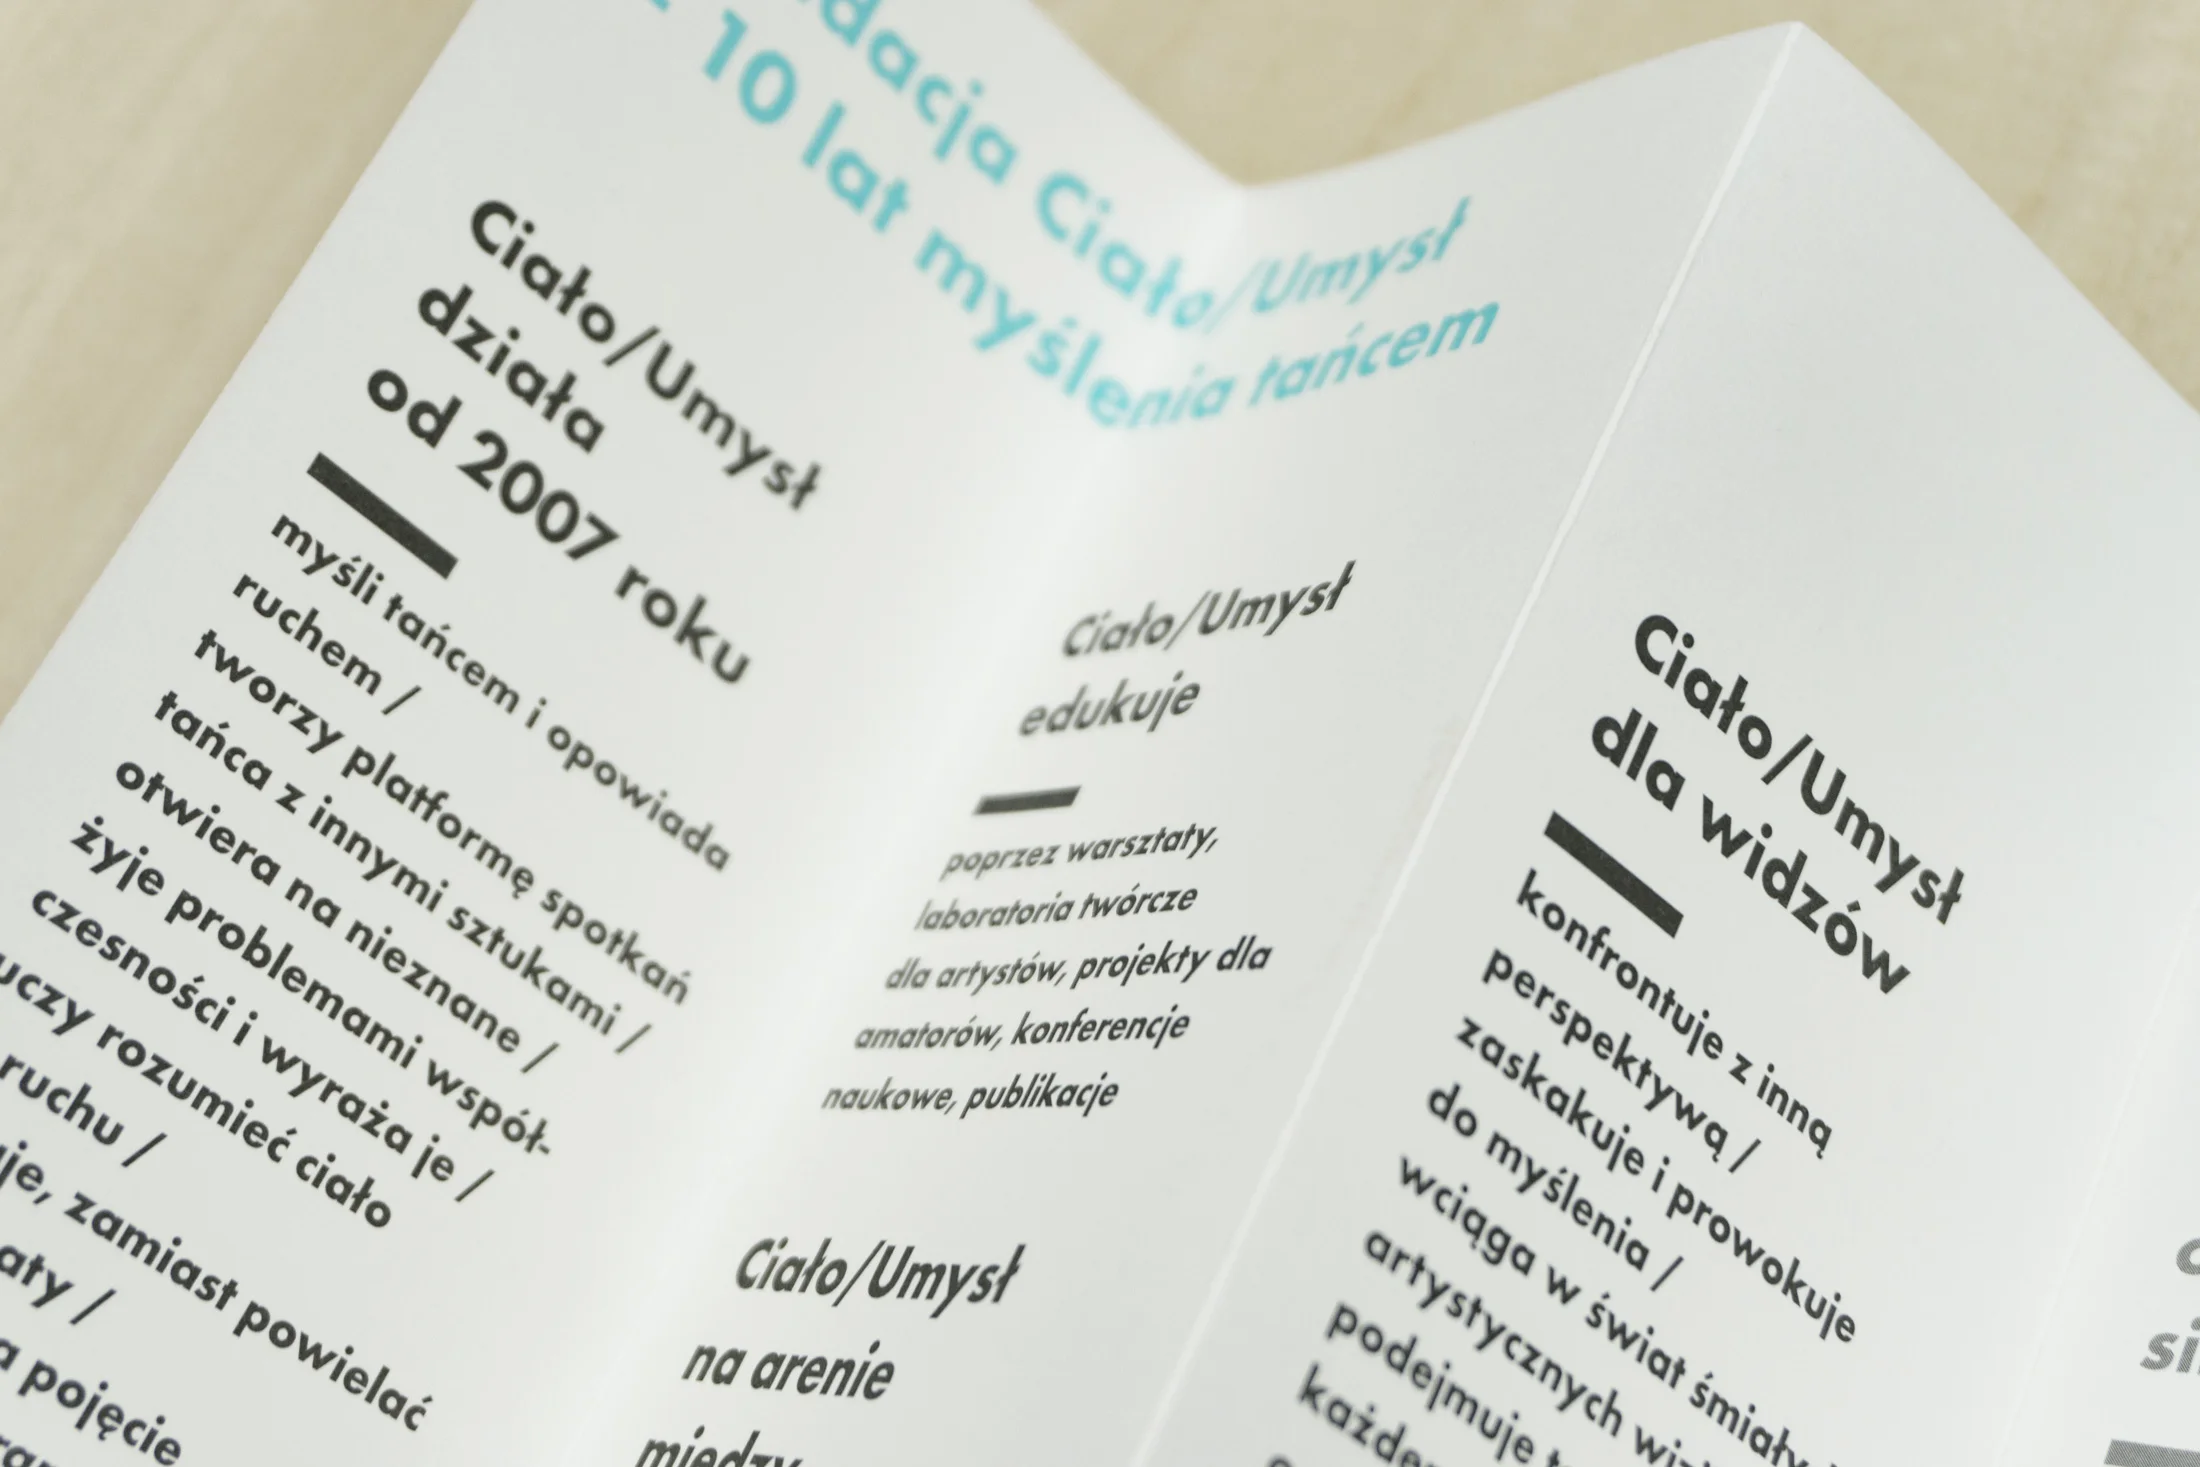 Ciało/Umysł
10 lat myślenia tańcem
Ciało/Umysł
działa
od 2007 roku
myśli tańcem i opowiada
ruchem /
tworzy platformę spotkań
tańca z innymi sztukami /
otwiera na nieznane /
żyje problemami współ-
czesności i wyraża je /
uczy rozumieć ciało
ruchu /
zamiast powielać
pojęcie
Ciało/Umysł
edukuje
poprzez warsztaty,
laboratoria twórcze
dla artystów, projekty dla
amatorów, konferencje
naukowe, publikacje
Ciało/Umysł
na arenie
Ciało/Umysł
dla widzów
konfrontuje z inną
perspektywą /
zaskakuje i prowokuje
do myślenia /
wciąga w świat
artystycznych
podejmuje